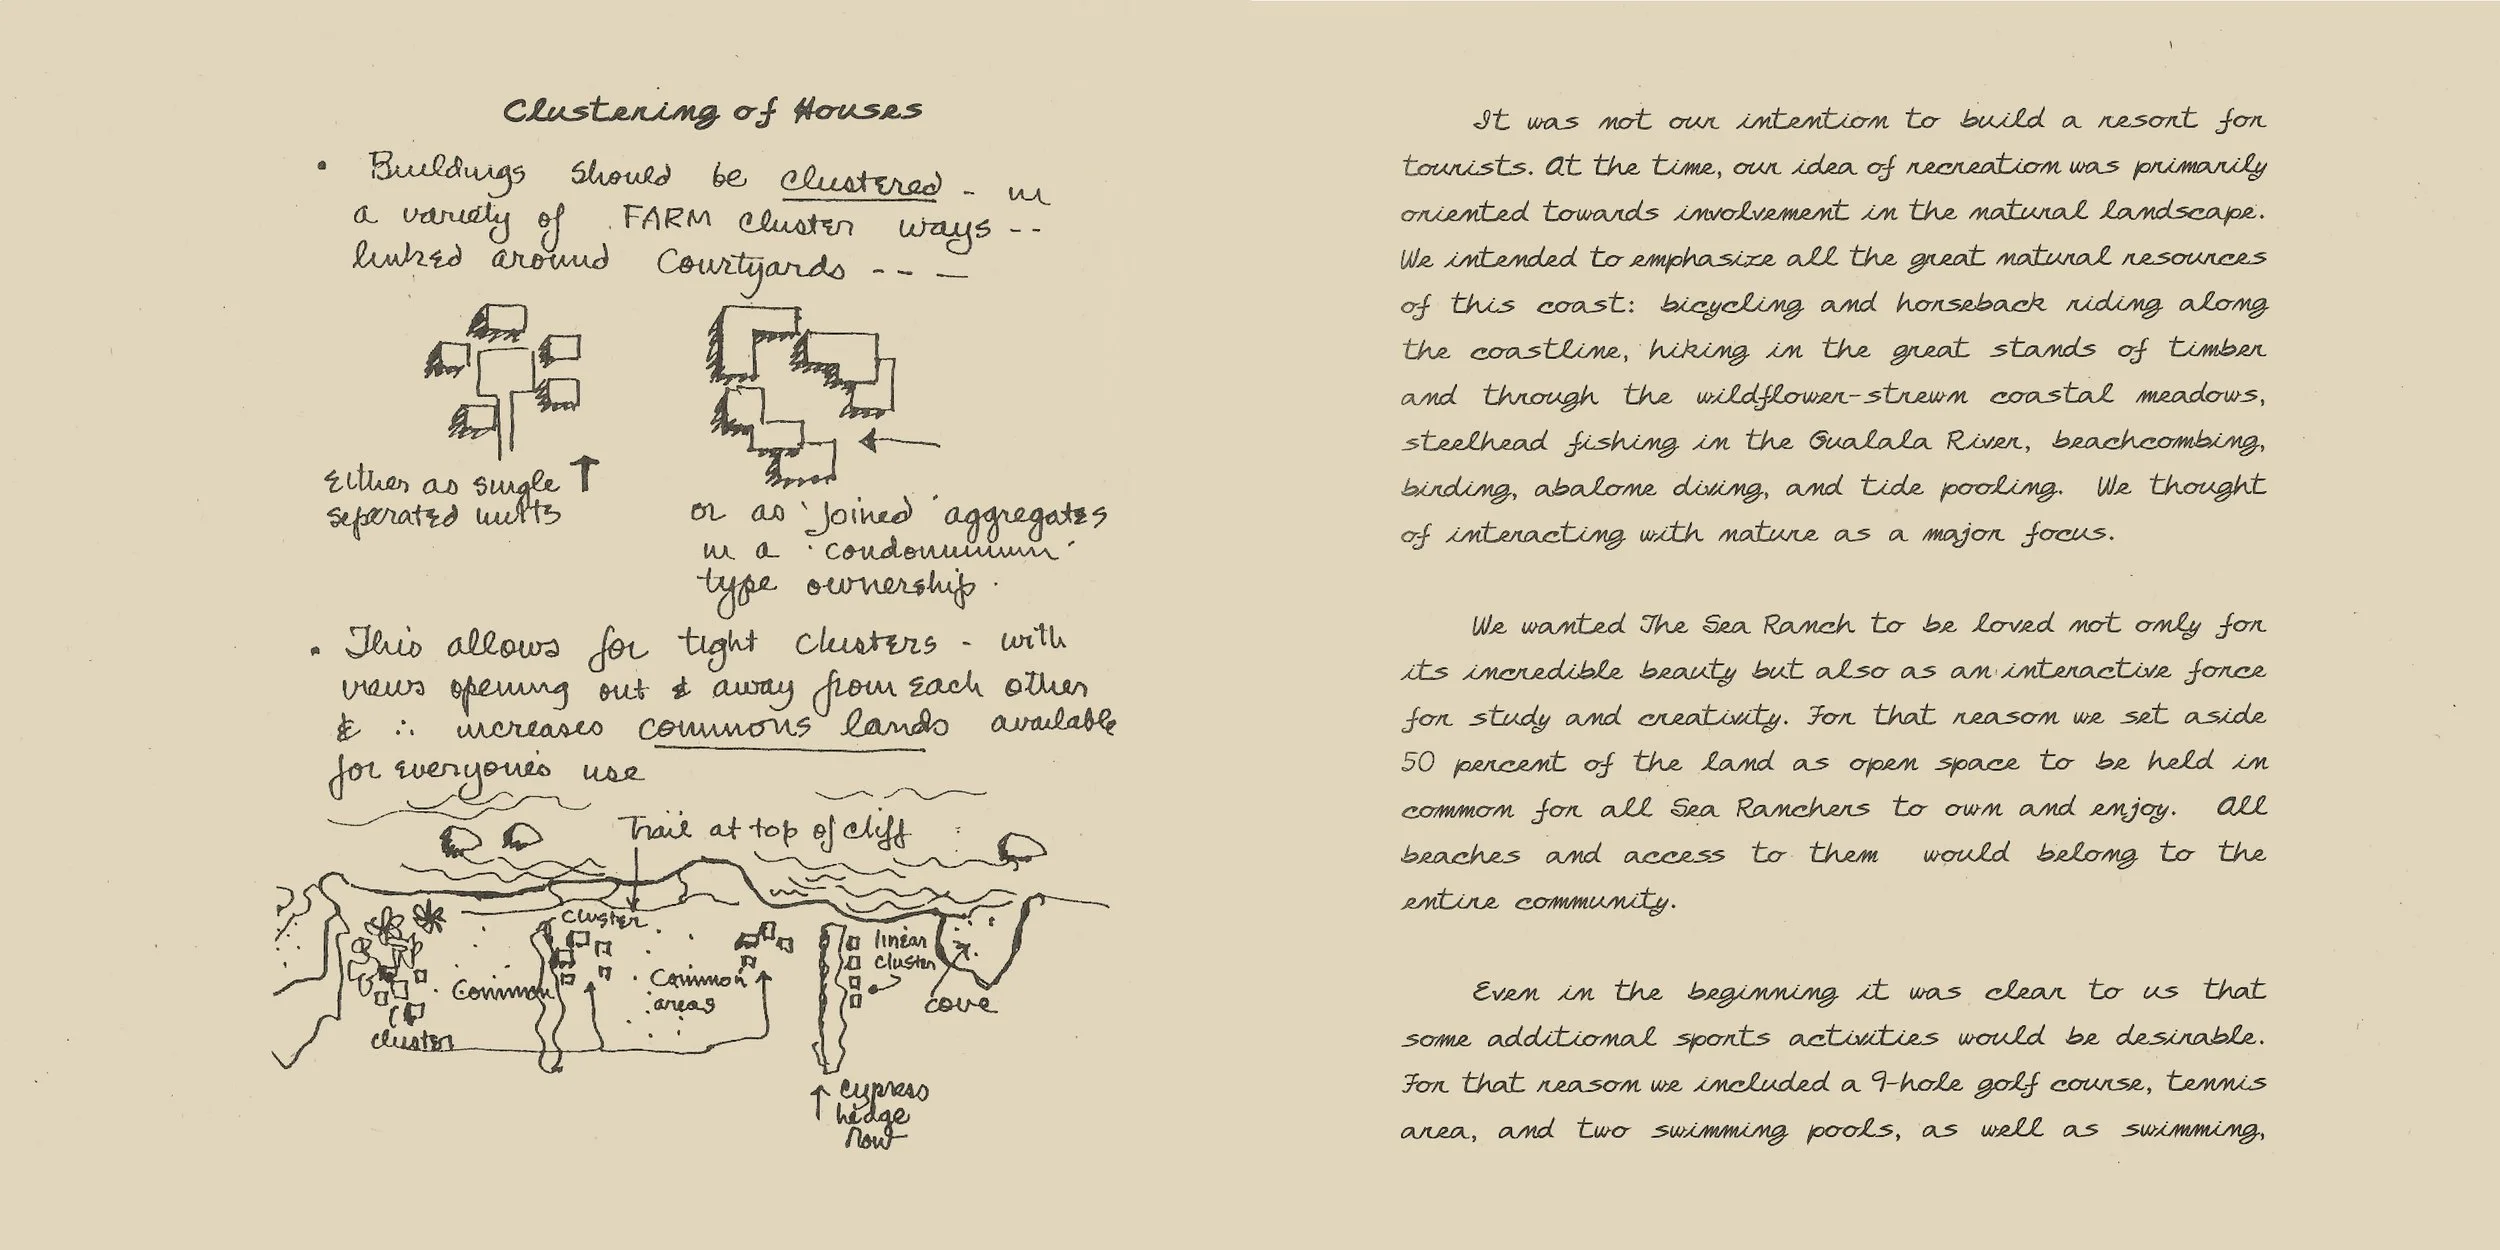 Clustering of Houses
• Buildings should be clustered - in
a variety of FARM cluster ways --
linked around Courtyards - - -
Either as single
separated units
or as 'joined' aggregates
in a 'condominium'
type ownership.
• This allows for tight clusters - with
views opening out & away from each other
& ∴ increases commons lands available
for everyone's use
Trail at top of cliff
cluster
linear
cluster
Common
Common
areas
cove
cluster
cypress
hedge
Row
It was not our intention to build a resort for
tourists. At the time, our idea of recreation was primarily
oriented towards involvement in the natural landscape.
We intended to emphasize all the great natural resources
of this coast: bicycling and horseback riding along
the coastline, hiking in the great stands of timber
and through the wildflower-strewn coastal meadows,
steelhead fishing in the Gualala River, beachcombing,
birding, abalone diving, and tide pooling. We thought
of interacting with nature as a major focus.
We wanted The Sea Ranch to be loved not only for
its incredible beauty but also as an interactive force
for study and creativity. For that reason we set aside
50 percent of the land as open space to be held in
common for all Sea Ranchers to own and enjoy. All
beaches and access to them would belong to the
entire community.
Even in the beginning it was clear to us that
some additional sports activities would be desirable.
For that reason we included a 9-hole golf course, tennis
area, and two swimming pools, as well as swimming,